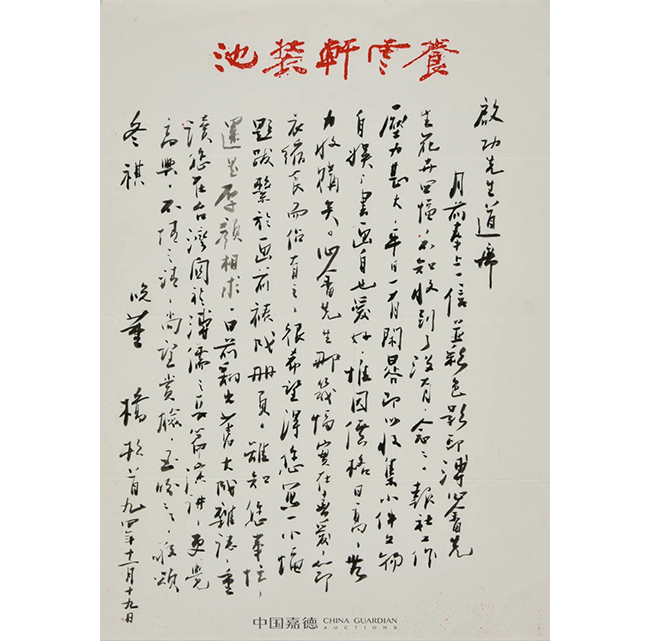 養雲軒裝池
啟功先生道席
月前奉上一信並彩色影印溥心畬先
生花卉四幅,不知收到了沒有,念々。報社工作
壓力甚大,年日一有閑暇即以收集小件文物
自娛,書畫自也愛好,惟因價格日高,無
力收購矣。心畬先生那幾幅實在喜愛,節
衣縮食而有之,很希望得您寫一小幅
題跋繫於畫前裱成冊頁,雖知您事忙,
還是厚顏相求。日前翻出舊大成雜誌,重
讀您在台灣關於溥儒之長篇演講,更覺
高興。不情之請,尚望賞臉,至盼々。敬頌
冬祺
晚 董橋 頓首 九四年十一月十九日
中国嘉德 CHINA GUARDIAN
AUCTIONS